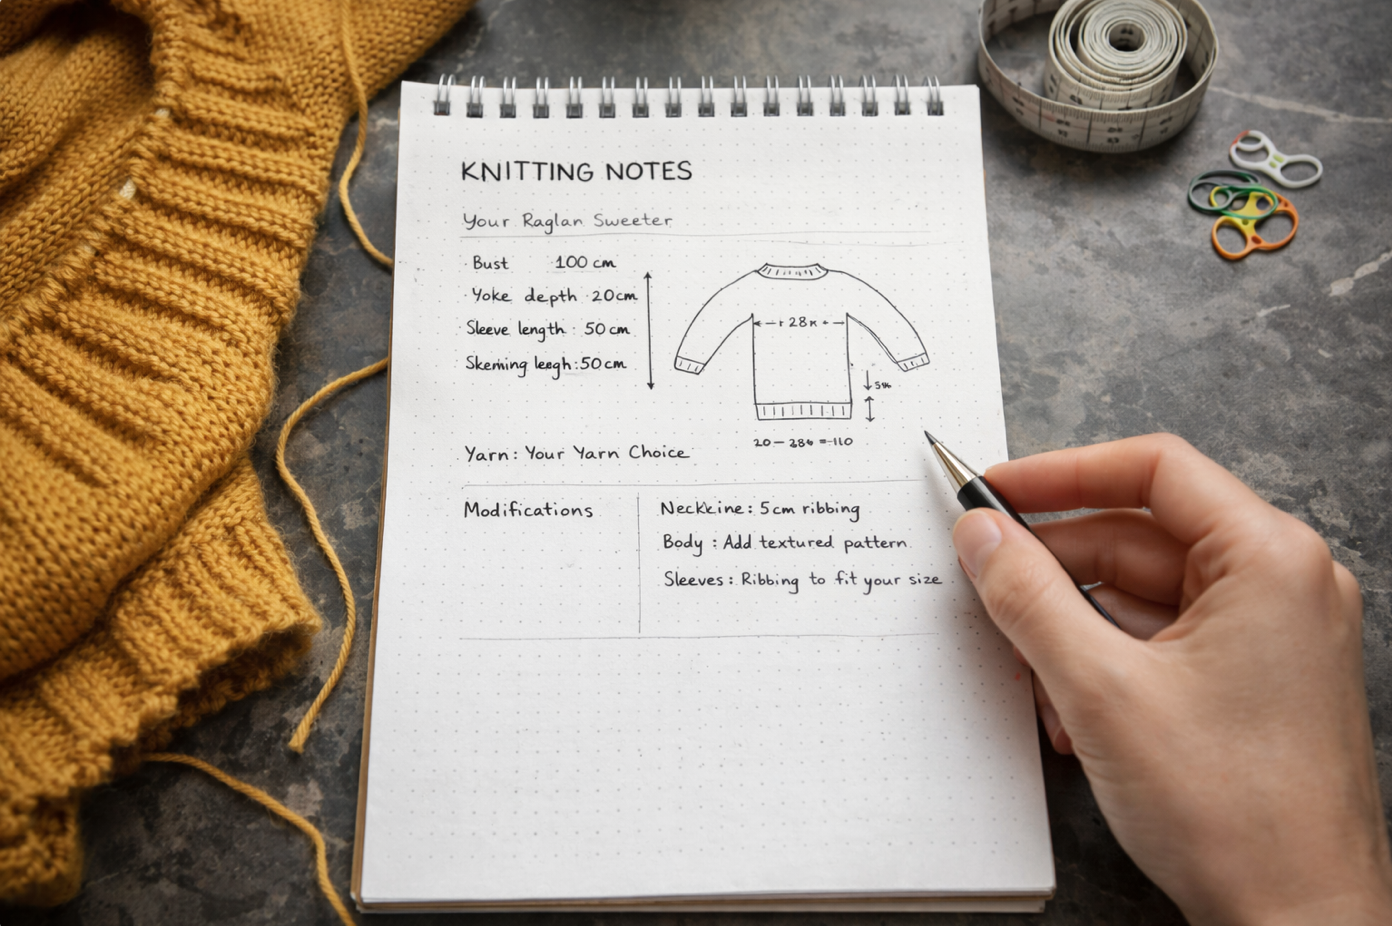 KNITTING NOTES
Your Raglan Sweeter
Bust 100 cm
Yoke depth 20cm
Sleeve length : 50 cm
Skeming leegh:50cm
28
5
Yarn: Your Yarn Choice
20 - 38 = 110
Modifications
Neckcine: 5cm ribbing
Body : Add textured pattern
Sleeves: Ribbing to fit your size